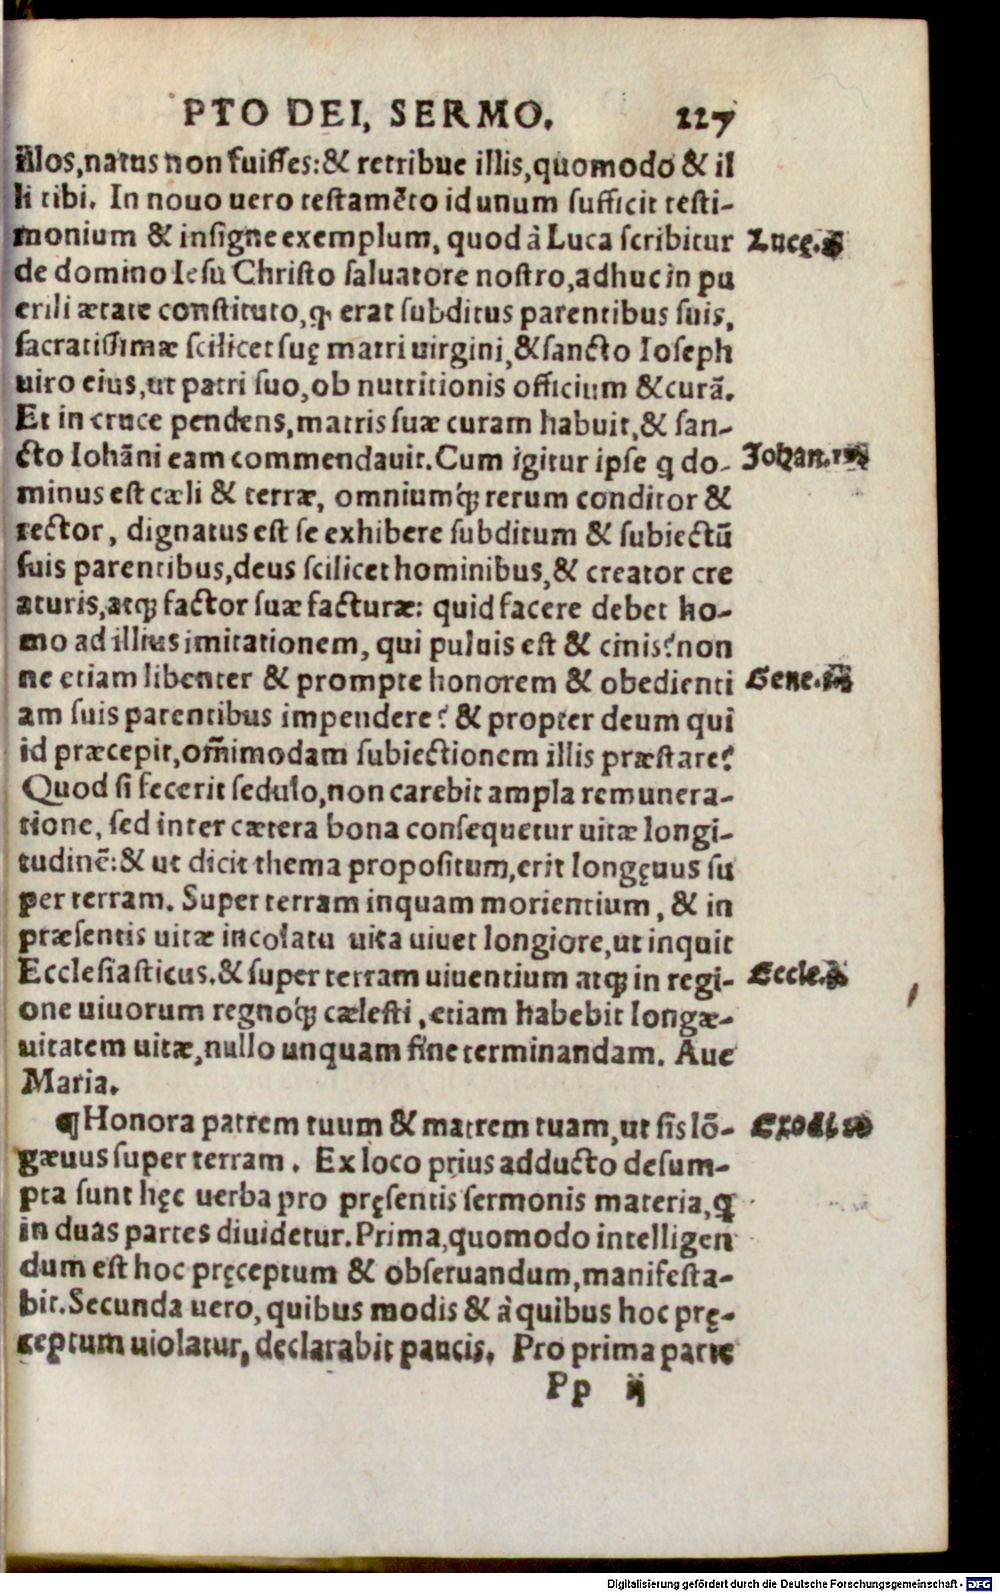 PTO DEI, SERMO. 227
illos,natus non fuisses:& retribue illis,quomodo & il
li tibi. In nouo uero testamẽto id unum sufficit testi-
monium & insigne exemplum, quod à Luca scribitur
Lucę.
de domino Iesu Christo saluatore nostro,adhuc in pu
erili ætate constituto,ꝙ erat subditus parentibus suis,
sacratissimæ scilicet suę matri uirgini,& sancto Ioseph
uiro eius,ut patri suo,ob nutritionis officium & curã.
Et in cruce pendens,matris suæ curam habuit,& san-
cto Iohãni eam commendauit.Cum igitur ipse q̃ do-
Johan.
minus est cæli & terræ, omniumq́ꝫ rerum conditor &
rector, dignatus est se exhibere subditum & subiectũ
suis parentibus,deus scilicet hominibus,& creator cre
aturis,atqꝫ factor suæ facturæ: quid facere debet ho-
mo ad illius imitationem, qui puluis est & cinis? non
ne etiam libenter & prompte honorem & obedienti
Gene.
am suis parentibus impendere? & propter deum qui
id præcepit,om̃imodam subiectionem illis præstare?
Quod si fecerit sedulo,non carebit ampla remunera-
tione, sed inter cætera bona consequetur uitæ longi-
tudinẽ:& ut dicit thema propositum,erit longęuus su
per terram. Super terram inquam morientium, & in
præsentis uitæ incolatu uita uiuet longiore,ut inquit
Ecclesiasticus.& super terram uiuentium atqꝫ in regi-
Eccle.
one uiuorum regnoq́ꝫ cælesti, etiam habebit longæ-
uitatem uitæ,nullo unquam fine terminandam. Aue
Maria.
¶ Honora patrem tuum & matrem tuam,ut sis lõ-
Exodi
gæuus super terram. Ex loco prius adducto desum-
pta sunt hęc uerba pro pręsentis sermonis materia,q̃
in duas partes diuidetur.Prima,quomodo intelligen
dum est hoc pręceptum & obseruandum,manifesta-
bit.Secunda uero, quibus modis & à quibus hoc prę-
ceptum uiolatur, declarabit paucis. Pro prima parte
Pp ij
Digitalisierung gefördert durch die Deutsche Forschungsgemeinschaft - DFG